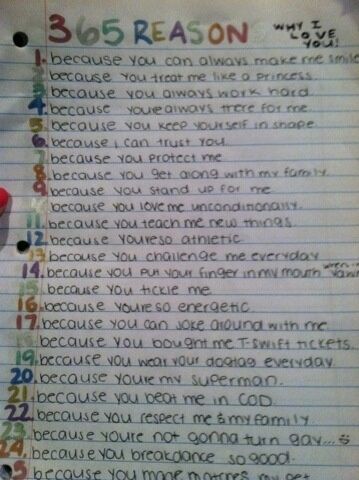 365 REASONS WHY I LOVE YOU!
1. because you can always make me smile
2. because you treat me like a princess.
3. because you always work hard.
4. because youre always there for me.
5. because you keep yourself in shape.
6. because i can trust you.
7. because you protect me.
8. because you get along with my family.
9. because you stand up for me.
because you love me unconditionally.
11. because you teach me new things.
12. because youre so athletic.
13. because you challenge me everyday
14. because you put your finger in my mouth when i yawn
15. because you tickle me.
16. because youre so energetic.
17. because you can joke around with me.
18. because you bought me T-Swift tickets.
19. because you wear your dogtag everyday.
20. because youre my superman.
21. because you beat me in COD.
22. because you respect me & my family.
23. because youre not gonna turn gay...
24. because you breakdance so good.
25 because you